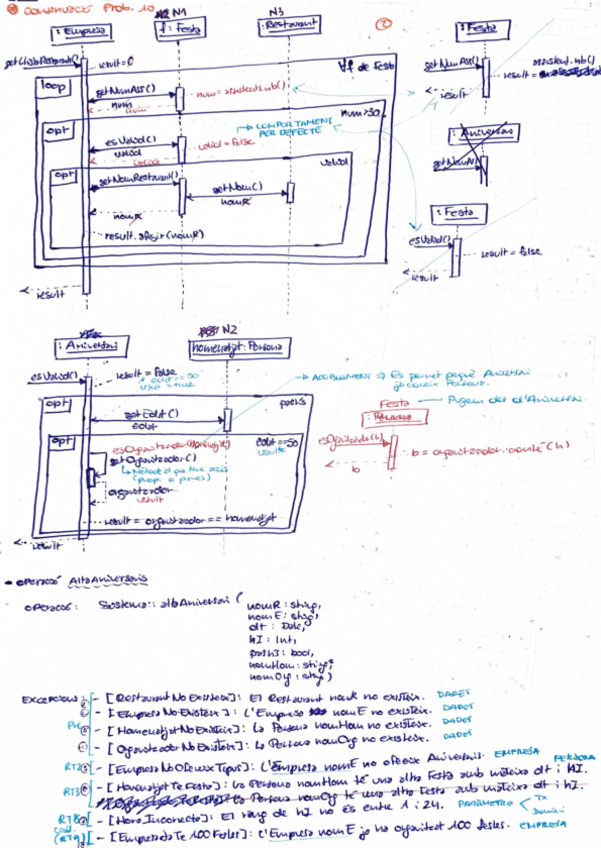 CONTINUACIÓ Prob. 10
: Empresa
N1
f: Festa
N3
: Restaurant
result=0
loop
∀f de Festa
getNumAss()
num = assistents.nb()
num
opt
num>30
COMPORTAMENT
PER DEFECTE
esValid()
valid = false
valid
opt
valid
getNomRestaurant()
getNom()
nomR
nomR
result.afegir(nomR)
result
: Festa
getNumAss()
result = assistent.nb()
result
: Aniversari
getNumAss
: Festa
esValid()
result = false
result
: Aniversari
N2
homenatjat: Persona
esValid()
result = false
ACOBLAMENT → Es permet perquè Aniversari
ja coneix Persona.
opt
getEdat()
edat
opt
edat==50
esOrganitzador(homenatjat)
getOrganitzador()
organitzador
result
result = organitzador == homenatjat
result
Festa
Pugem des d'Aniversari.
esOrganitzador(h)
b = organitzador.conté(h)
b
- OPERACIÓ AltaAniversaris
- OPERACIÓ: Sistema:: altaAniversari (
nomR: string,
nomE: string,
dt: Date,
hI: Int,
path3: bool,
nomHom: string,
nomOrg: string)
EXCEPCIONS:
- [RestaurantNoExisteix]: El Restaurant nomR no existeix. DADES
- [EmpresaNoExisteix]: L'Empresa nomE no existeix. DADES
- [HomenatjatNoExisteix]: La Persona nomHom no existeix. DADES
- [OrganitzadorNoExisteix]: La Persona nomOrg no existeix. DADES
RT2 - [EmpresaNoOfereixTipus]: L'Empresa nomE no ofereix Aniversaris. EMPRESA
RT3 - [HomenatjatTeFesta]: La Persona nomHom té una altra Festa amb mateixa dt i hI. PERSONA
La Persona nomOrg té una altra Festa amb mateixa dt i hI.
RT8 - [HoraIncorrecta]: El rang de hI no és entre 1 i 24. PARÀMETRE
(RT9) - [EmpresaJaTe100Festes]: L'Empresa nomE ja ha organitzat 100 festes. EMPRESA